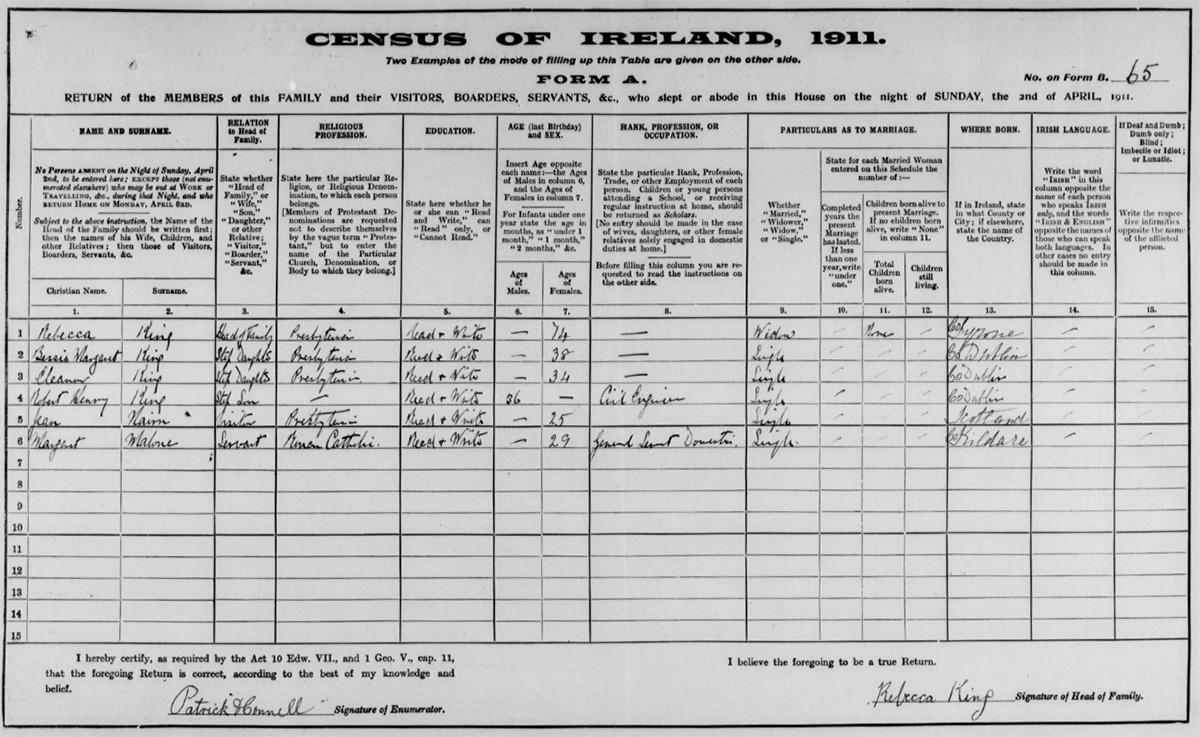 CENSUS OF IRELAND, 1911.
Two Examples of the mode of filling up this Table are given on the other side.
FORM A.
No. on Form B. 65
RETURN of the MEMBERS of this FAMILY and their VISITORS, BOARDERS, SERVANTS, &c., who slept or abode in this House on the night of SUNDAY, the 2nd of APRIL, 1911.
Number.
NAME AND SURNAME.
No Persons ABSENT on the Night of Sunday, April
2nd, to be entered here; EXCEPT those (not enu-
merated elsewhere) who may be out at WORK or
TRAVELLING, &c., during that Night, and who
RETURN HOME ON MONDAY, APRIL 3RD.
Subject to the above instruction, the Name of the
Head of the Family should be written first;
then the names of his Wife, Children, and
other Relatives; then those of Visitors,
Boarders, Servants, &c.
Christian Name.
Surname.
RELATION
to Head of
Family.
State whether
"Head of
Family," or
"Wife,"
"Son,"
"Daughter,"
or other
Relative;
"Visitor,"
"Boarder,"
"Servant,"
&c.
RELIGIOUS
PROFESSION.
State here the particular Re-
ligion, or Religious Denom-
ination, to which each person
belongs.
[Members of Protestant De-
nominations are requested
not to describe themselves
by the vague term "Protes-
tant," but to enter the
name of the Particular
Church, Denomination, or
Body to which they belong.]
EDUCATION.
State here whether he
or she can "Read
and Write," can
"Read" only, or
"Cannot Read."
AGE (last Birthday)
and SEX.
Insert Age opposite
each name:—the Ages
of Males in column 6,
and the Ages of
Females in column 7.
For Infants under one
year state the age in
months, as "under 1
month," "1 month,"
"2 months," &c.
Ages
of
Males.
Ages
of
Females.
RANK, PROFESSION, OR
OCCUPATION.
State the particular Rank, Profession,
Trade, or other Employment of each
person. Children or young persons
attending a School, or receiving
regular instruction at home, should
be returned as Scholars.
[No entry should be made in the case
of wives, daughters, or other female
relatives solely engaged in domestic
duties at home.]
Before filling this column you are re-
quested to read the instructions on
the other side.
PARTICULARS AS TO MARRIAGE.
Whether
"Married,"
"Widower,"
"Widow,"
or "Single."
State for each Married Woman
entered on this Schedule the
number of:—
Completed
years the
present
Marriage
has lasted.
If less
than one
year, write
"under
one."
Children born alive to
present Marriage.
If no children born
alive, write "None"
in column 11.
Total
Children
born
alive.
Children
still
living.
WHERE BORN.
If in Ireland, state
in what County or
City; if elsewhere,
state the name of
the Country.
IRISH LANGUAGE.
Write the word
"IRISH" in this
column opposite the
name of each person
who speaks IRISH
only, and the words
"IRISH & ENGLISH"
opposite the names of
those who can speak
both languages. In
other cases no entry
should be made in
this column.
If Deaf and Dumb;
Dumb only;
Blind;
Imbecile or Idiot;
or Lunatic.
Write the respec-
tive infirmities
opposite the name
of the afflicted
person.
1. 2. 3. 4. 5. 6. 7. 8. 9. 10. 11. 12. 13. 14. 15.
1 Rebecca King Head of Family Presbyterian Read & Write — 74 — Widow None Co Tyrone
2 Bessie Margaret King Step Daughter Presbyterian Read & Write — 38 — Single Co Dublin
3 Eleanor King Step Daughter Presbyterian Read & Write — 34 — Single Co Dublin
4 Robert Henry King Step Son Read & Write 36 — Civil Engineer Single Co Dublin
5 Jean Nairn Visitor Presbyterian Read & Write — 25 Single Scotland
6 Margaret Malone Servant Roman Catholic Read & Write — 29 General Servant Domestic Single Co Kildare
7
8
9
10
11
12
13
14
15
I hereby certify, as required by the Act 10 Edw. VII., and 1 Geo. V., cap. 11,
that the foregoing Return is correct, according to the best of my knowledge and
belief.
Patrick O'Connell Signature of Enumerator.
I believe the foregoing to be a true Return.
Rebecca King Signature of Head of Family.